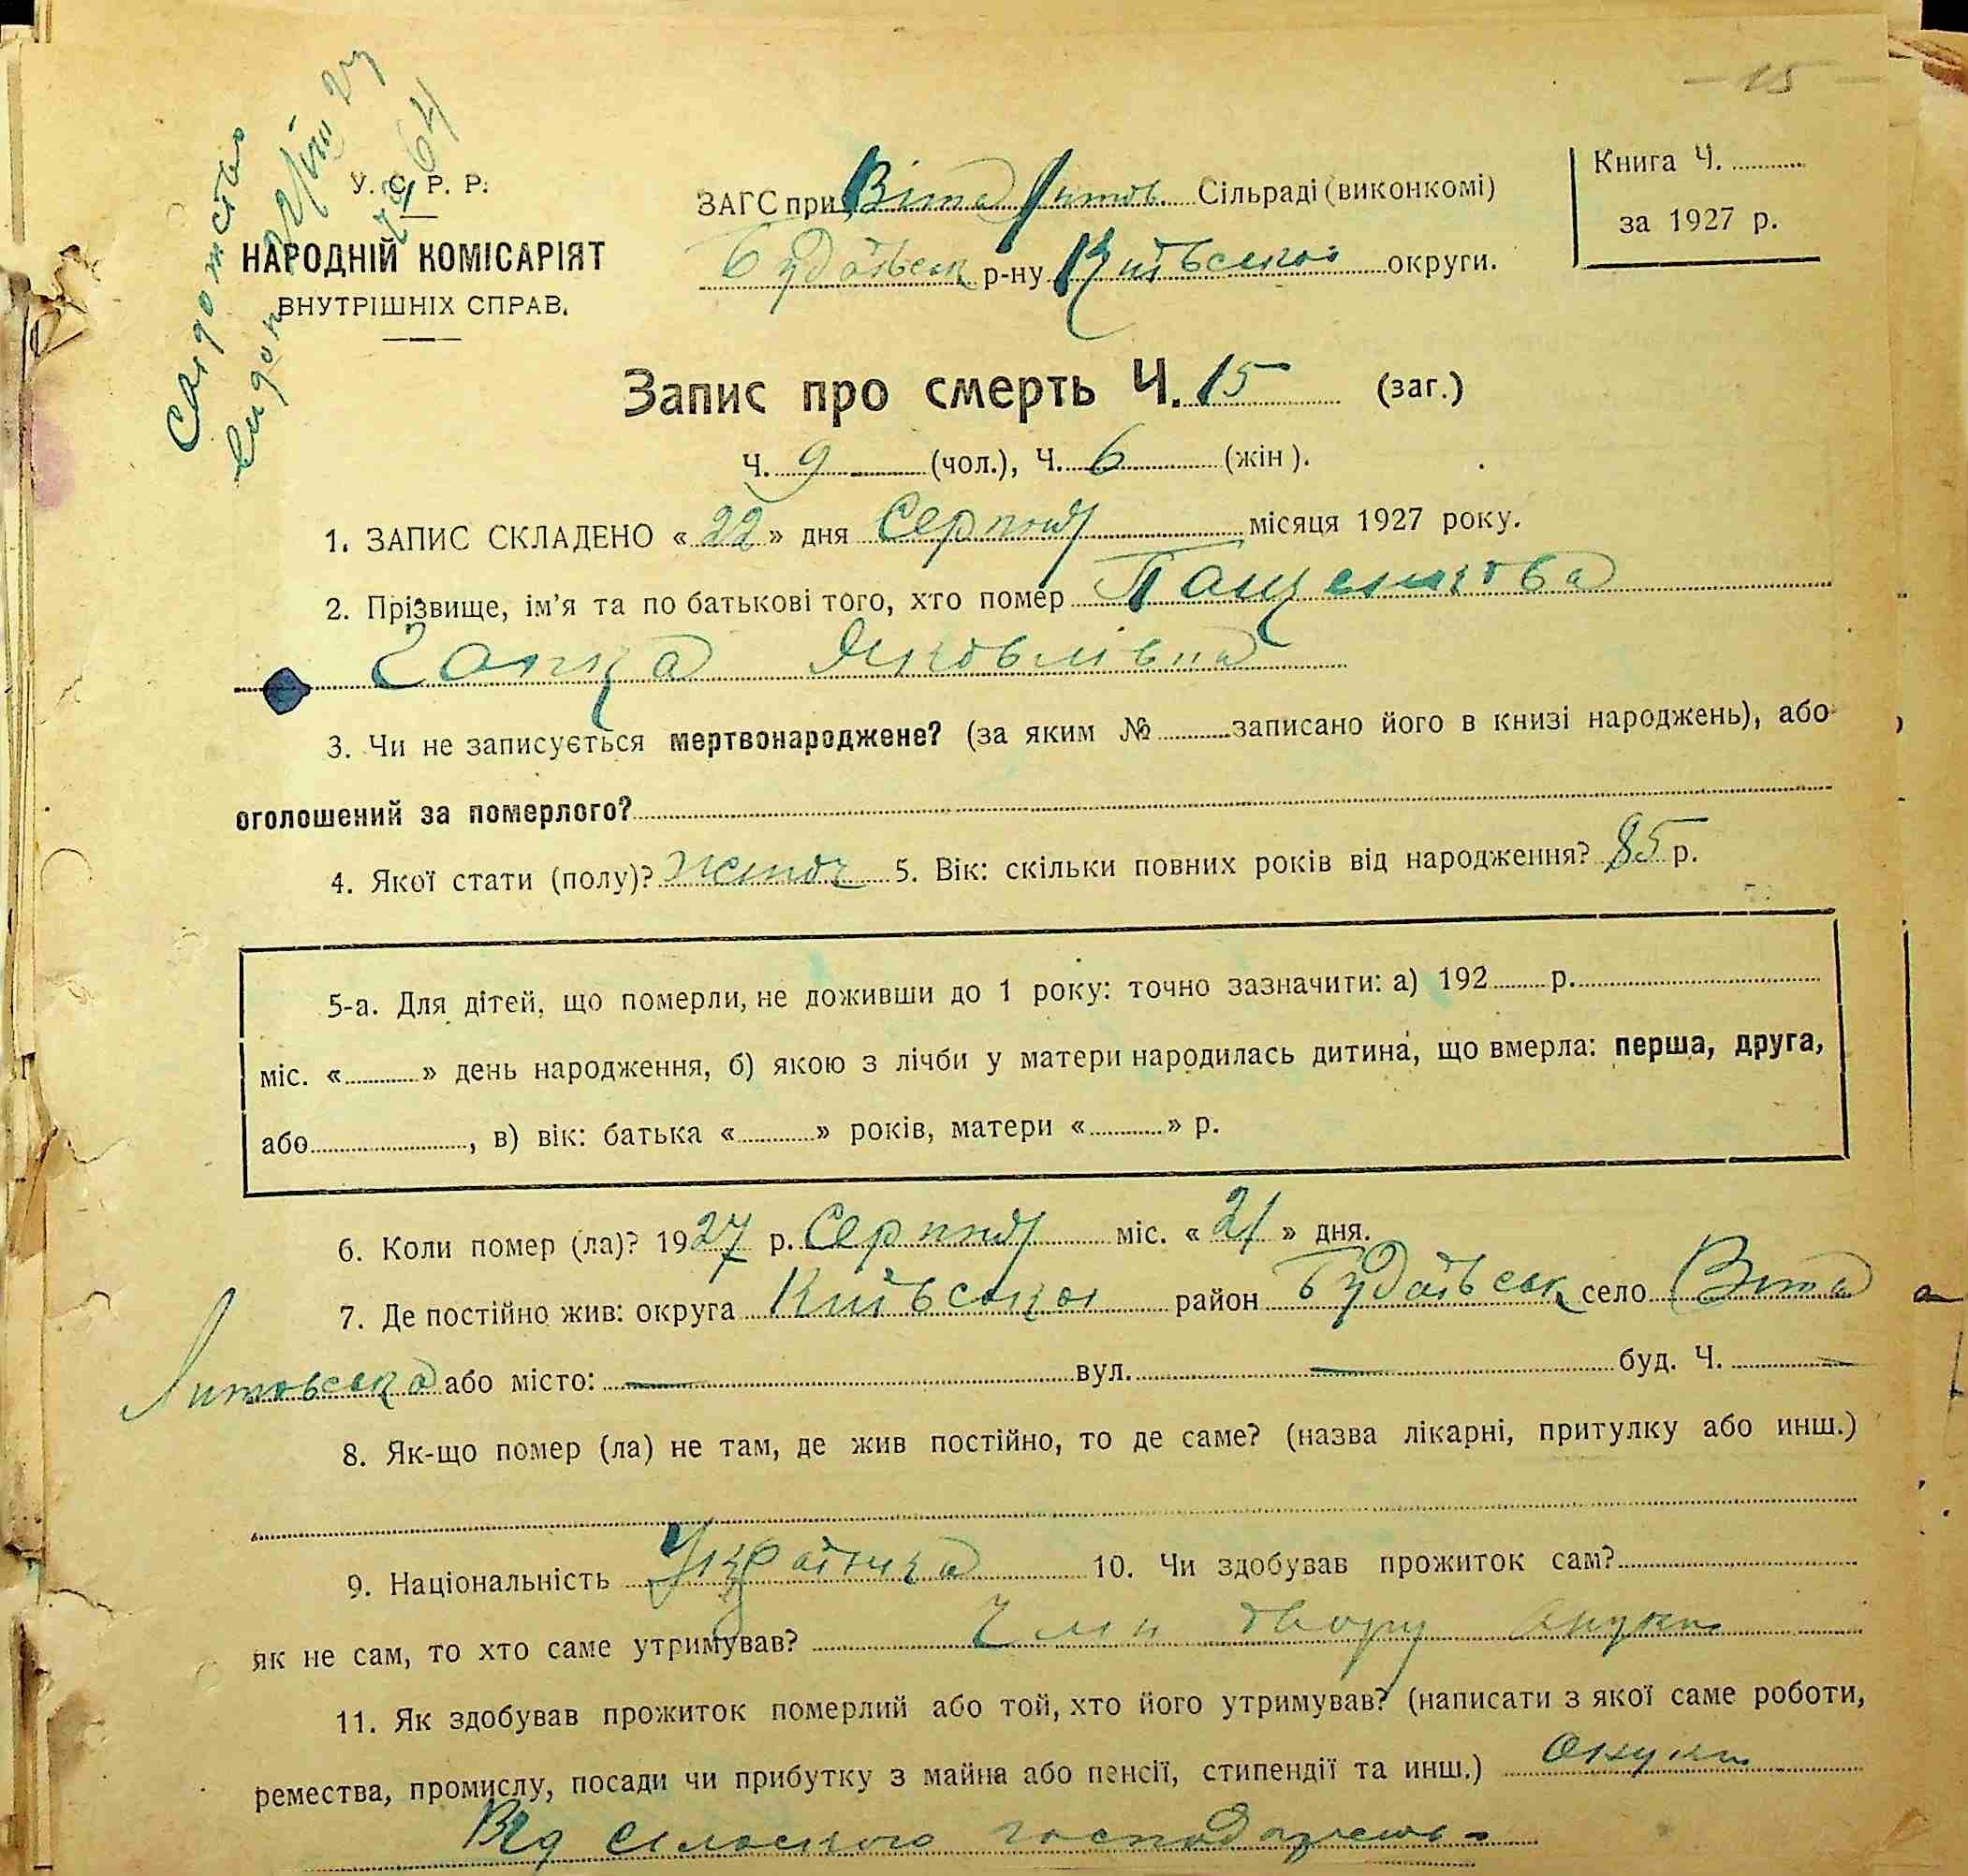 - 15 -
У. С. Р. Р.
НАРОДНІЙ КОМІСАРІЯТ
ВНУТРІШНІХ СПРАВ.
ЗАГС при Віта Литов. Сільраді (виконкомі)
Будаївськ р-ну Київської округи.
Книга Ч.
за 1927 р.
Запис про смерть Ч. 15 (заг.)
Ч. 9 (чол.), Ч. 6 (жін).
1. ЗАПИС СКЛАДЕНО « 22 » дня Серпня місяця 1927 року.
2. Прізвище, ім'я та по батькові того, хто помер Пащенкова
Ганка Яковлівна
3. Чи не записується мертвонароджене? (за яким № записано його в книзі народжень), або
оголошений за померлого?
4. Якої стати (полу)? жіноч 5. Вік: скільки повних років від народження? 85 р.
5-а. Для дітей, що померли, не доживши до 1 року: точно зазначити: а) 192 р.
міс. « » день народження, б) якою з лічби у матери народилась дитина, що вмерла: перша, друга,
або , в) вік: батька « » років, матери « » р.
6. Коли помер (ла)? 1927 р. Серпня міс. « 21 » дня.
7. Де постійно жив: округа Київської район Будаївськ село Віта
Литовська або місто: — вул. — буд. Ч. —
8. Як-що помер (ла) не там, де жив постійно, то де саме? (назва лікарні, притулку або инш.)
9. Національність Українка 10. Чи здобував прожиток сам?
як не сам, то хто саме утримував? Член двору
11. Як здобував прожиток померлий або той, хто його утримував? (написати з якої саме роботи,
ремества, промислу, посади чи прибутку з майна або пенсії, стипендії та инш.)
Від сільского